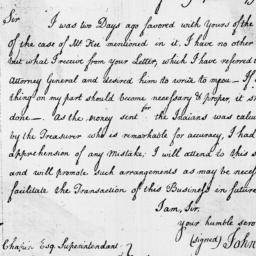 Sir
I was two Days ago favored with Yours of the
of the case of Mr Kee mentioned in it, I have no other
but what I receive from your Letter, which I have referred t
Attorney General and desired him to write to you — If
thing on my part should become necessary & proper, it s
done — As the money sent for the Indians was calcu
by the Treasurer who is remarkable for accuracy, I had
apprehension of any Mistake; I will attend to this s
and will promote such arrangements as may be neces
facilitate the Transaction of this Business in future
I am, Sir,
your humble serv
(signed) John
Chapin Esq. Superintendant